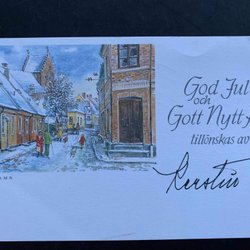 God Jul
och
Gott Nytt
tillönskas av
Kerstin